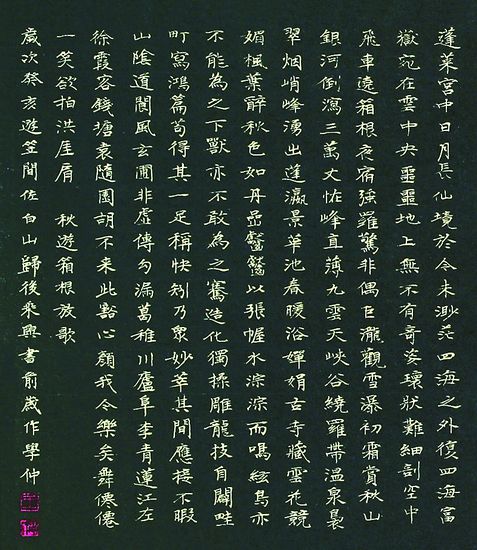 蓬萊宮中日月長仙境於今未渺茫四海之外復四海富
嶽宛在雲中央靈靈地上無不有奇峯瓌狀難細剖空中
飛車遶箱根夜宿強羅驚非偶巨瀧觀雪瀑初霜賞秋山
銀河倒瀉三萬丈恠峰直薄九雲天峽谷繞羅帶溫泉裊
翠烟峭峰湧出逢瀛景華池春暖浴嬋娟古寺藏雲花競
媚楓葉醉秋色如丹嵒以張幄水淙淙而鳴絃鳥亦
不能為之下獸亦不敢為之騫造化獨操雕龍技自闢畦
町寫鴻篇苟得其一足稱快矧乃眾妙萃其間應接不暇
山陰道閬風玄圃非虛傳勾漏葛稚川廬阜李青蓮江左
徐霞客錢塘袁隨園胡不來此豁心顏我今樂矣舞僊僊
一笑欲拍洪厓肩 秋遊箱根放歌
歲次癸亥遊笠間佐白山歸後乘興書前歲作學仲